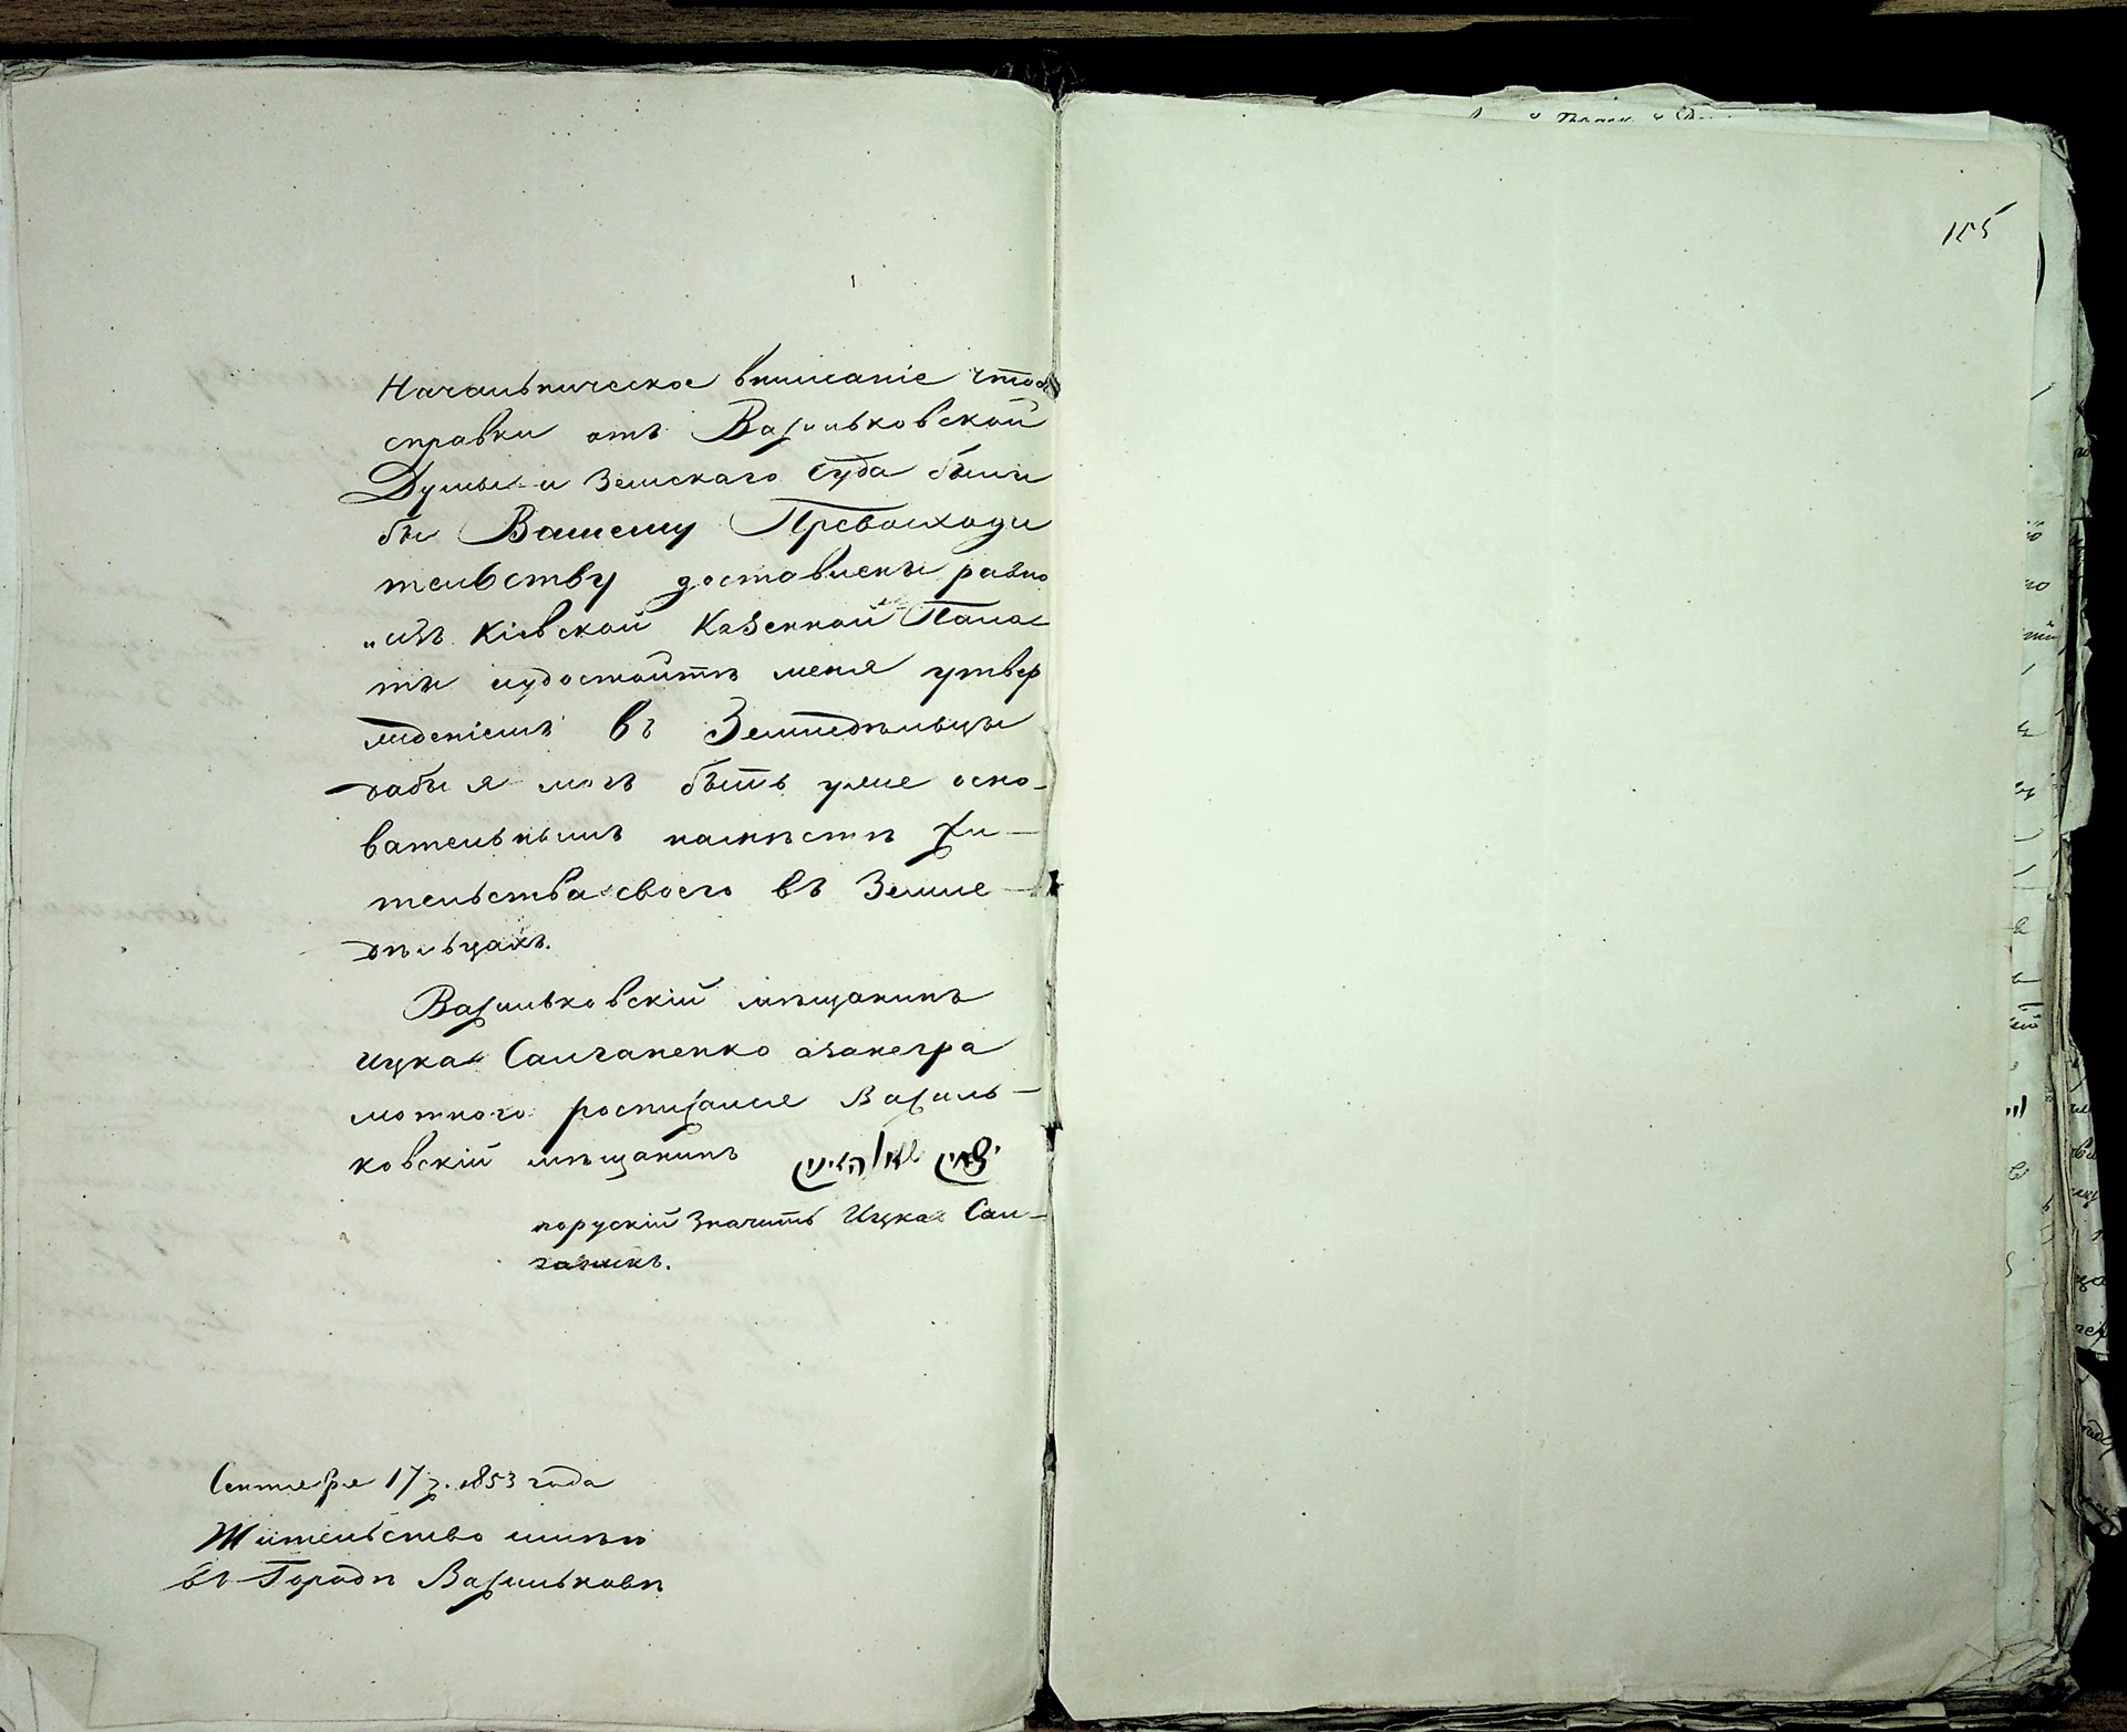 Начальническое вниманіе чтоб
справки отъ Васильковской
Думы и Земскаго Суда были
бы Вашему Превосходи
тельству доставлены равно
изъ Кіевской Казенной Пала
ты иудостоить меня утвер
жденіемъ въ Земледѣльцы
дабы я могъ быть уже осно-
вательнымъ намѣстѣ жи-
тельства своего въ Земле-
дѣльцахъ.
Васильковскій мѣщанинъ
Ицка Салганенко азанегра
мотного росписался Василь-
ковскій мѣщанинъ
порускій значитъ Ицка Сал-
ганикъ.
Сентября 17 д. 1853 года
Жительство имѣю
въ Городѣ Васильковѣ